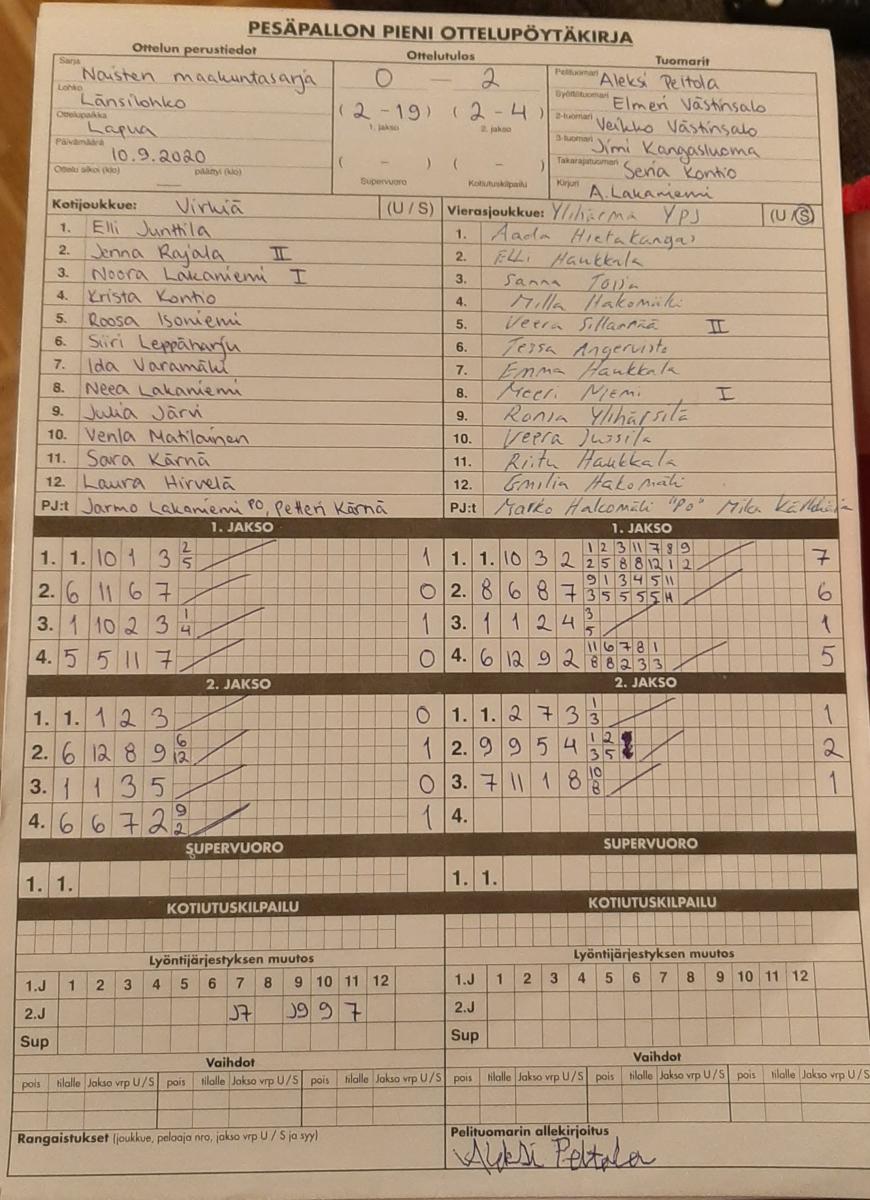 PESÄPALLON PIENI OTTELUPÖYTÄKIRJA
Ottelun perustiedot Ottelutulos Tuomarit
Sarja Naisten maakuntasarja
Lohko Länsilohko
Ottelupaikka Lapua
Päivämäärä 10.9.2020
Ottelu alkoi (klo) päättyi (klo)
0 - 2
(2 - 19) (2 - 4)
1. jakso 2. jakso
( - ) ( - )
Supervuoro Kotiutuskilpailu
Pelituomari Aleksi Peltola
Syöttötuomari Elmeri Västinsalo
2-tuomari Veikko Västinsalo
3-tuomari Jimi Kangasluoma
Takarajatuomari Senja Kontio
Kirjuri A. Lakaniemi
Kotijoukkue: Virkiä (U / S)
1. Elli Junttila
2. Jenna Rajala II
3. Noora Lakaniemi I
4. Krista Kontio
5. Roosa Isoniemi
6. Siiri Leppäharju
7. Ida Varamäki
8. Neea Lakaniemi
9. Julia Järvi
10. Venla Matilainen
11. Sara Kärnä
12. Laura Hirvelä
PJ:t Jarmo Lakaniemi PO, Petteri Kärnä
Vierasjoukkue: Ylihärmä YPJ (U / S)
1. Aada Hietakangas
2. Elli Haukkala
3. Sanna
4. Milla Hakomäki
5. Veera Sillanpää II
6. Tessa Angervisto
7. Emma Haukkala
8. Meeri Niemi I
9. Ronja Ylihärsilä
10. Veera Jussila
11. Riitu Haukkala
12. Emilia Hakomäki
PJ:t Marko Hakomäki "PO" Mika
1. JAKSO
1. 1. 10 1 3 2/5 1
2. 6 11 6 7 0
3. 1 10 2 3 1/4 1
4. 5 5 11 7 0
2. JAKSO
1. 1. 1 2 3 0
2. 6 12 8 9 6/12 1
3. 1 1 3 5 0
4. 6 6 7 2 9/2 1
SUPERVUORO
1. 1.
KOTIUTUSKILPAILU
1. JAKSO
1. 1. 10 3 2 1/2 2/5 3/8 11/8 7/12 8/1 9/2 7
2. 8 6 8 7 9/3 1/5 3/5 4/5 5/5 11/11 6
3. 1 1 2 4 3/5 1
4. 6 12 9 2 11/8 6/8 7/2 8/3 1/3 5
2. JAKSO
1. 1. 2 7 3 1/3 1
2. 9 9 5 4 1/3 2/5 2
3. 7 11 1 8 10/8 1
4.
SUPERVUORO
1. 1.
KOTIUTUSKILPAILU
Lyöntijärjestyksen muutos
1.J 1 2 3 4 5 6 7 8 9 10 11 12
2.J J7 J9 9 7
Sup
Vaihdot
pois tilalle Jakso vrp U / S pois tilalle Jakso vrp U / S pois tilalle Jakso vrp U / S
Lyöntijärjestyksen muutos
1.J 1 2 3 4 5 6 7 8 9 10 11 12
2.J
Sup
Vaihdot
pois tilalle Jakso vrp U / S pois tilalle Jakso vrp U / S pois tilalle Jakso vrp U / S
Rangaistukset (joukkue, pelaaja nro, jakso vrp U / S ja syy)
Pelituomarin allekirjoitus
Aleksi Peltola